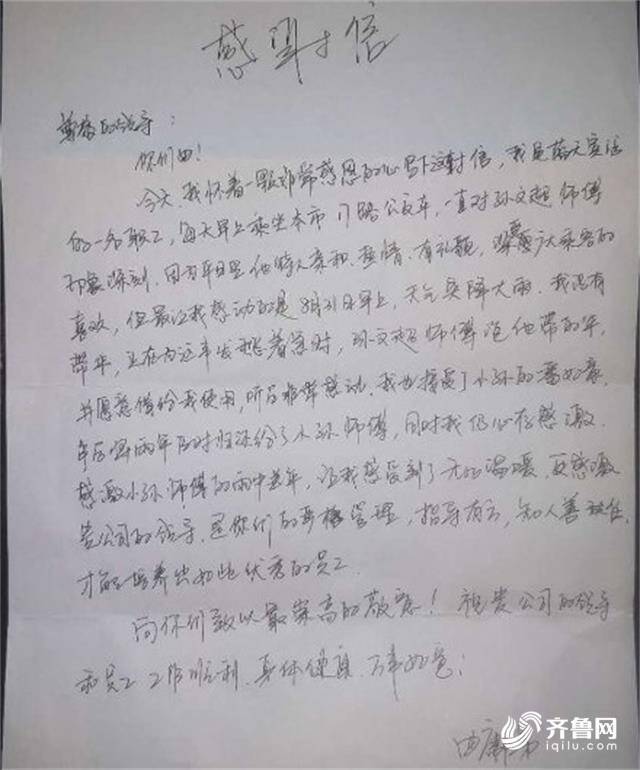 感谢信
尊敬的领导：
你们好！
今天，我怀着一颗非常感恩的心写下这封信，我是蓝天宾馆
的一名职工，每天早上乘坐本市17路公交车，一直对孙文超师傅
印象深刻，因为平日里他待人亲和、热情、有礼貌，深受广大乘客的
喜欢，但最让我感动的是8月21日早上，天气突降大雨，我没有
带伞，正在为这事发愁着急时，孙文超师傅说他带的伞，
并愿意借给我使用，听后非常感动，我也接受了小孙的一番好意，
事后雨伞及时归还给了小孙师傅，同时我仍心存感激，
感激小孙师傅的雨中送伞，让我感受到了无比温暖，更感激
贵公司的领导，是你们的严格管理，指导有方，知人善任，
才能培养出如此优秀的员工
向你们致以最崇高的敬意！祝贵公司的领导
和员工工作顺利，身体健康，万事如意；
齐鲁网
iqilu.com